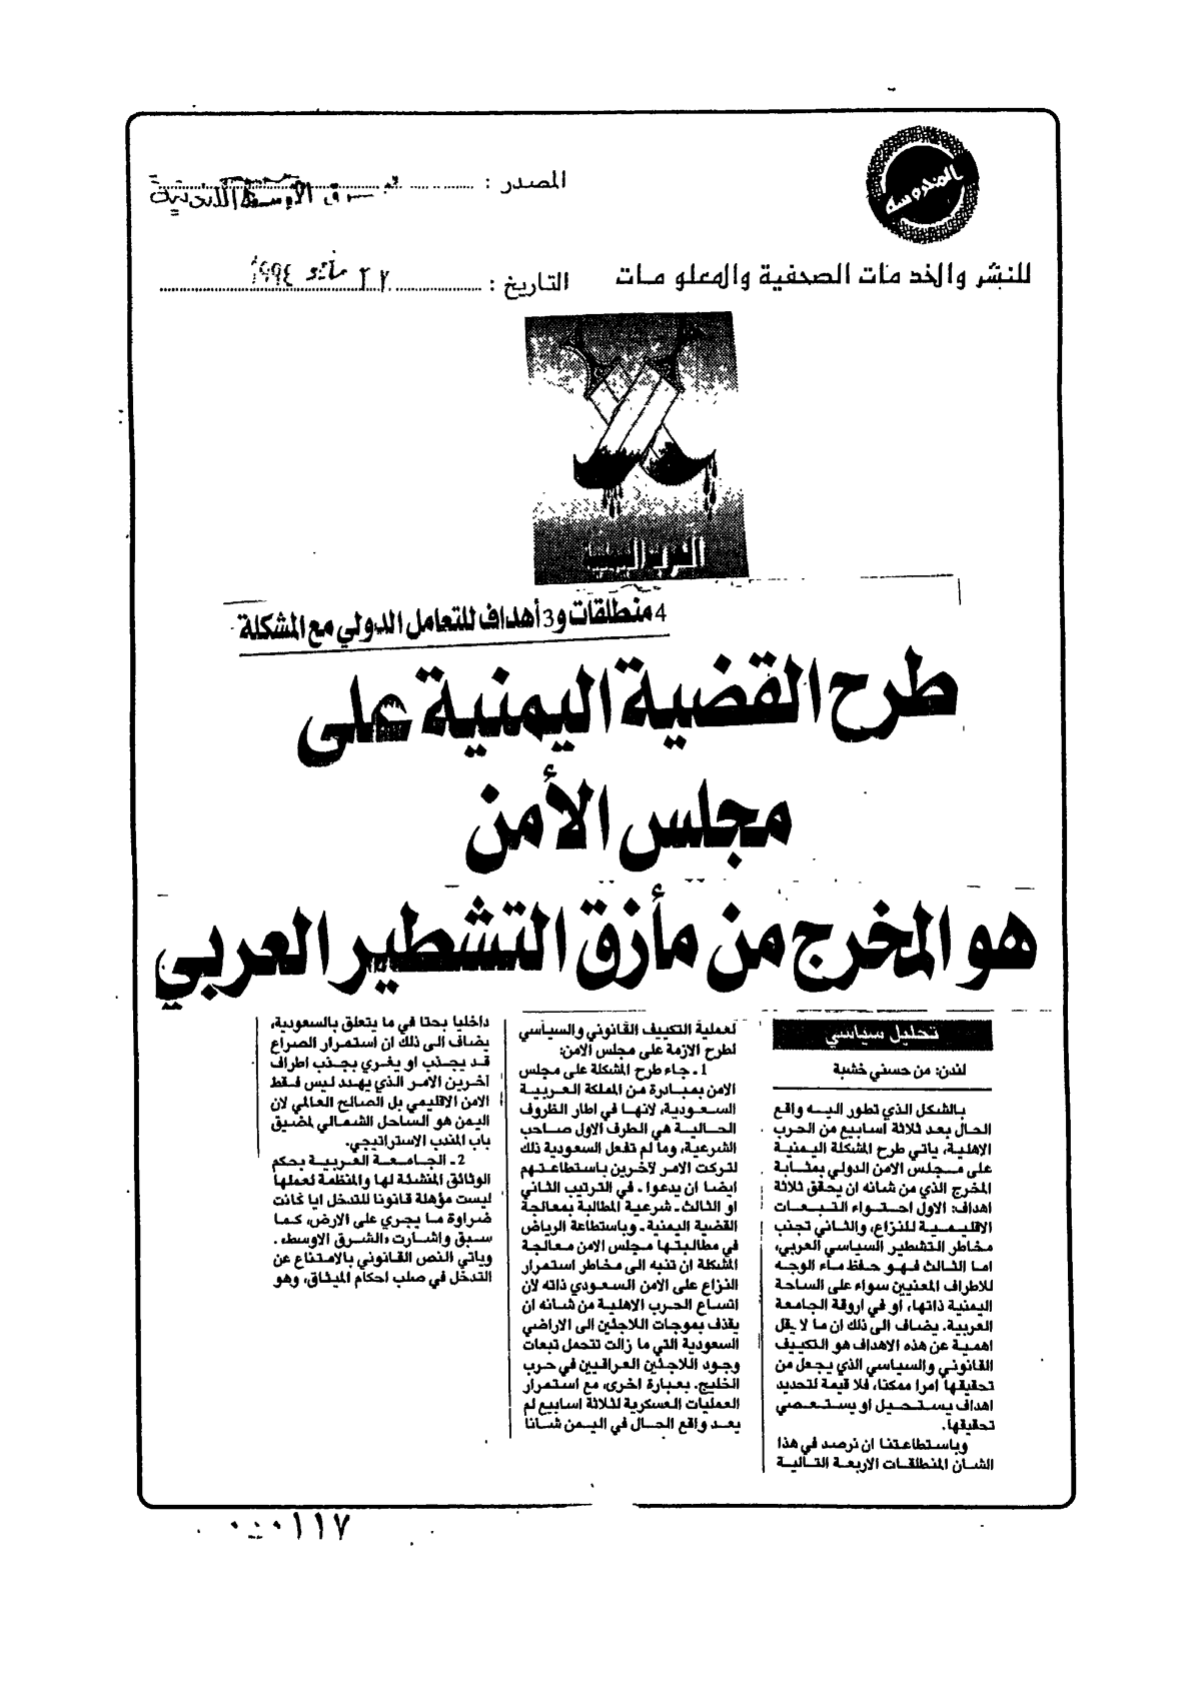 المحروسة
المصدر : الشرق الأوسط اللندنية
للنشر والخدمات الصحفية والمعلومات
التاريخ : ٢٧ مايو ١٩٩٤
الحرب اليمنية
4 منطلقات و3 أهداف للتعامل الدولي مع المشكلة
طرح القضية اليمنية على
مجلس الأمن
هو المخرج من مأزق التشطير العربي
تحليل سياسي
لندن: من حسني خشبة
بالشكل الذي تطور اليه واقع
الحال بعد ثلاثة اسابيع من الحرب
الاهلية، ياتي طرح المشكلة اليمنية
على مجلس الامن الدولي بمثابة
المخرج الذي من شانه ان يحقق ثلاثة
اهداف: الاول احتواء التبعات
الاقليمية للنزاع، والثاني تجنب
مخاطر التشطير السياسي العربي،
اما الثالث فهو حفظ ماء الوجه
للاطراف المعنيين سواء على الساحة
اليمنية ذاتها، او في اروقة الجامعة
العربية. يضاف الى ذلك ان ما لا يقل
اهمية عن هذه الاهداف هو التكييف
القانوني والسياسي الذي يجعل من
تحقيقها امرا ممكنا، فلا قيمة لتحديد
اهداف يستحيل او يستعصي
تحقيقها.
وباستطاعتنا ان نرصد في هذا
الشان المنطلقات الاربعة التالية
لعملية التكييف القانوني والسياسي
لطرح الازمة على مجلس الامن:
1 ـ جاء طرح المشكلة على مجلس
الامن بمبادرة من المملكة العربية
السعودية، لانها في اطار الظروف
الحالية هي الطرف الاول صاحب
الشرعية، وما لم تفعل السعودية ذلك
لتركت الامر لآخرين باستطاعتهم
ايضا ان يدعوا ـ في الترتيب الثاني
او الثالث ـ شرعية المطالبة بمعالجة
القضية اليمنية ـ وباستطاعة الرياض
في مطالبتها مجلس الامن معالجة
المشكلة ان تنبه الى مخاطر استمرار
النزاع على الامن السعودي ذاته لان
اتساع الحرب الاهلية من شانه ان
يقذف بموجات اللاجئين الى الاراضي
السعودية التي ما زالت تتحمل تبعات
وجود اللاجئين العراقيين في حرب
الخليج. بعبارة اخرى، مع استمرار
العمليات العسكرية لثلاثة اسابيع لم
يعد واقع الحال في اليمن شانا
داخليا بحتا في ما يتعلق بالسعودية،
يضاف الى ذلك ان استمرار الصراع
قد يجذب او يغري بجذب اطراف
آخرين الامر الذي يهدد ليس فقط
الامن الاقليمي بل الصالح العالمي لان
اليمن هو الساحل الشمالي لمضيق
باب المندب الاستراتيجي.
2 ـ الجامعة العربية بحكم
الوثائق المنشئة لها والمنظمة لعملها
ليست مؤهلة قانونا للتدخل ايا كانت
ضراوة ما يجري على الارض، كما
سبق واشارت «الشرق الاوسط» .
وياتي النص القانوني بالامتناع عن
التدخل في صلب احكام الميثاق، وهو